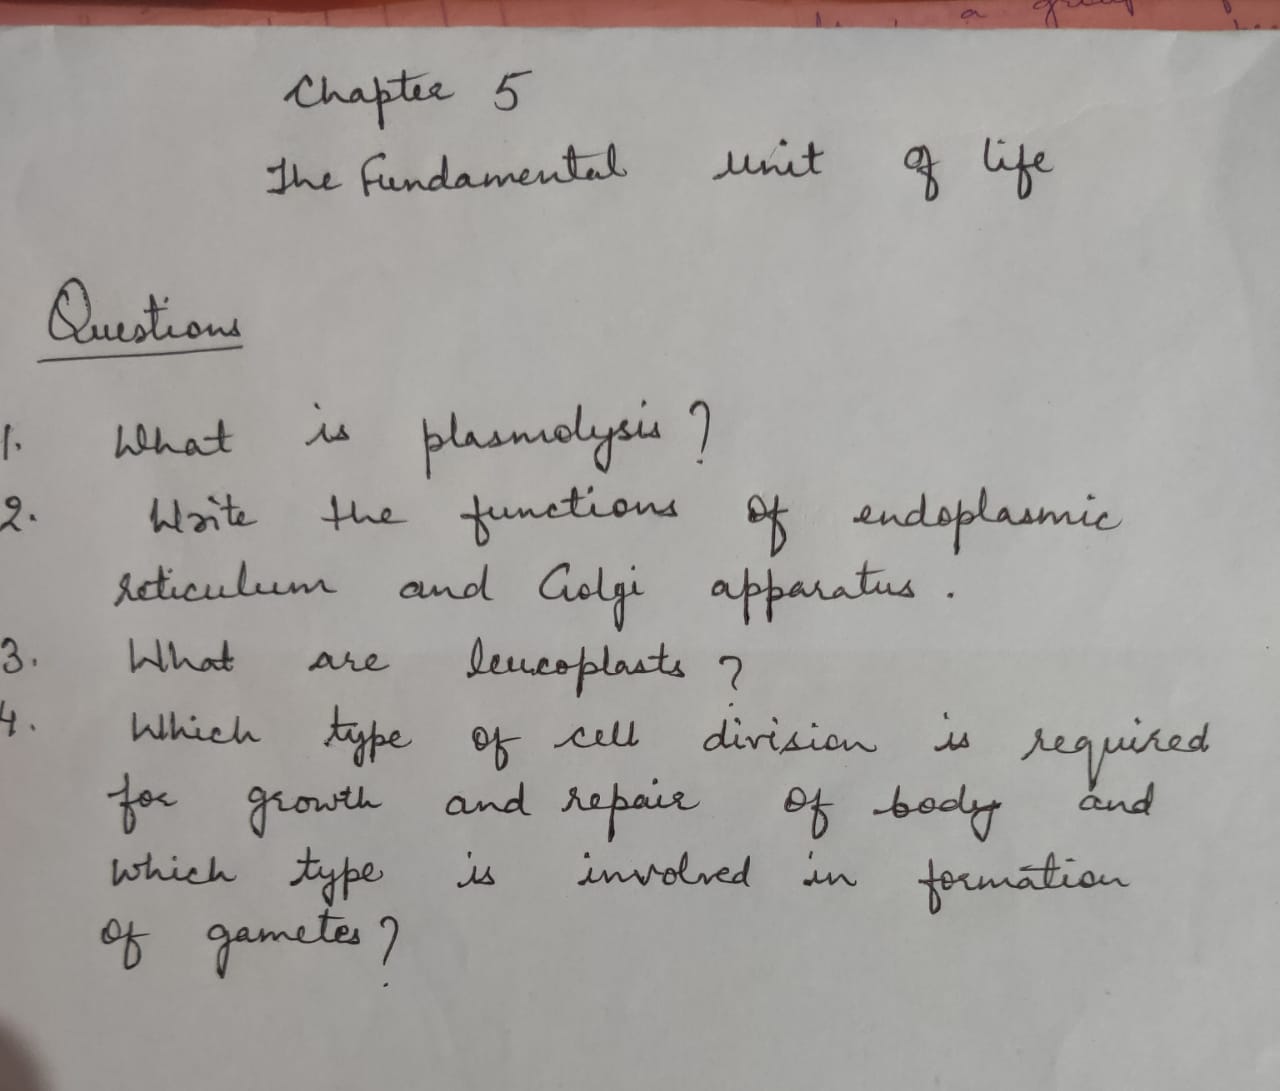 a group
Chapter 5
The Fundamental unit of life
Questions
1. What is plasmolysis?
2. Write the functions of endoplasmic
reticulum and Golgi apparatus.
3. What are leucoplasts?
4. Which type of cell division is required
for growth and repair of body and
which type is involved in formation
of gametes?